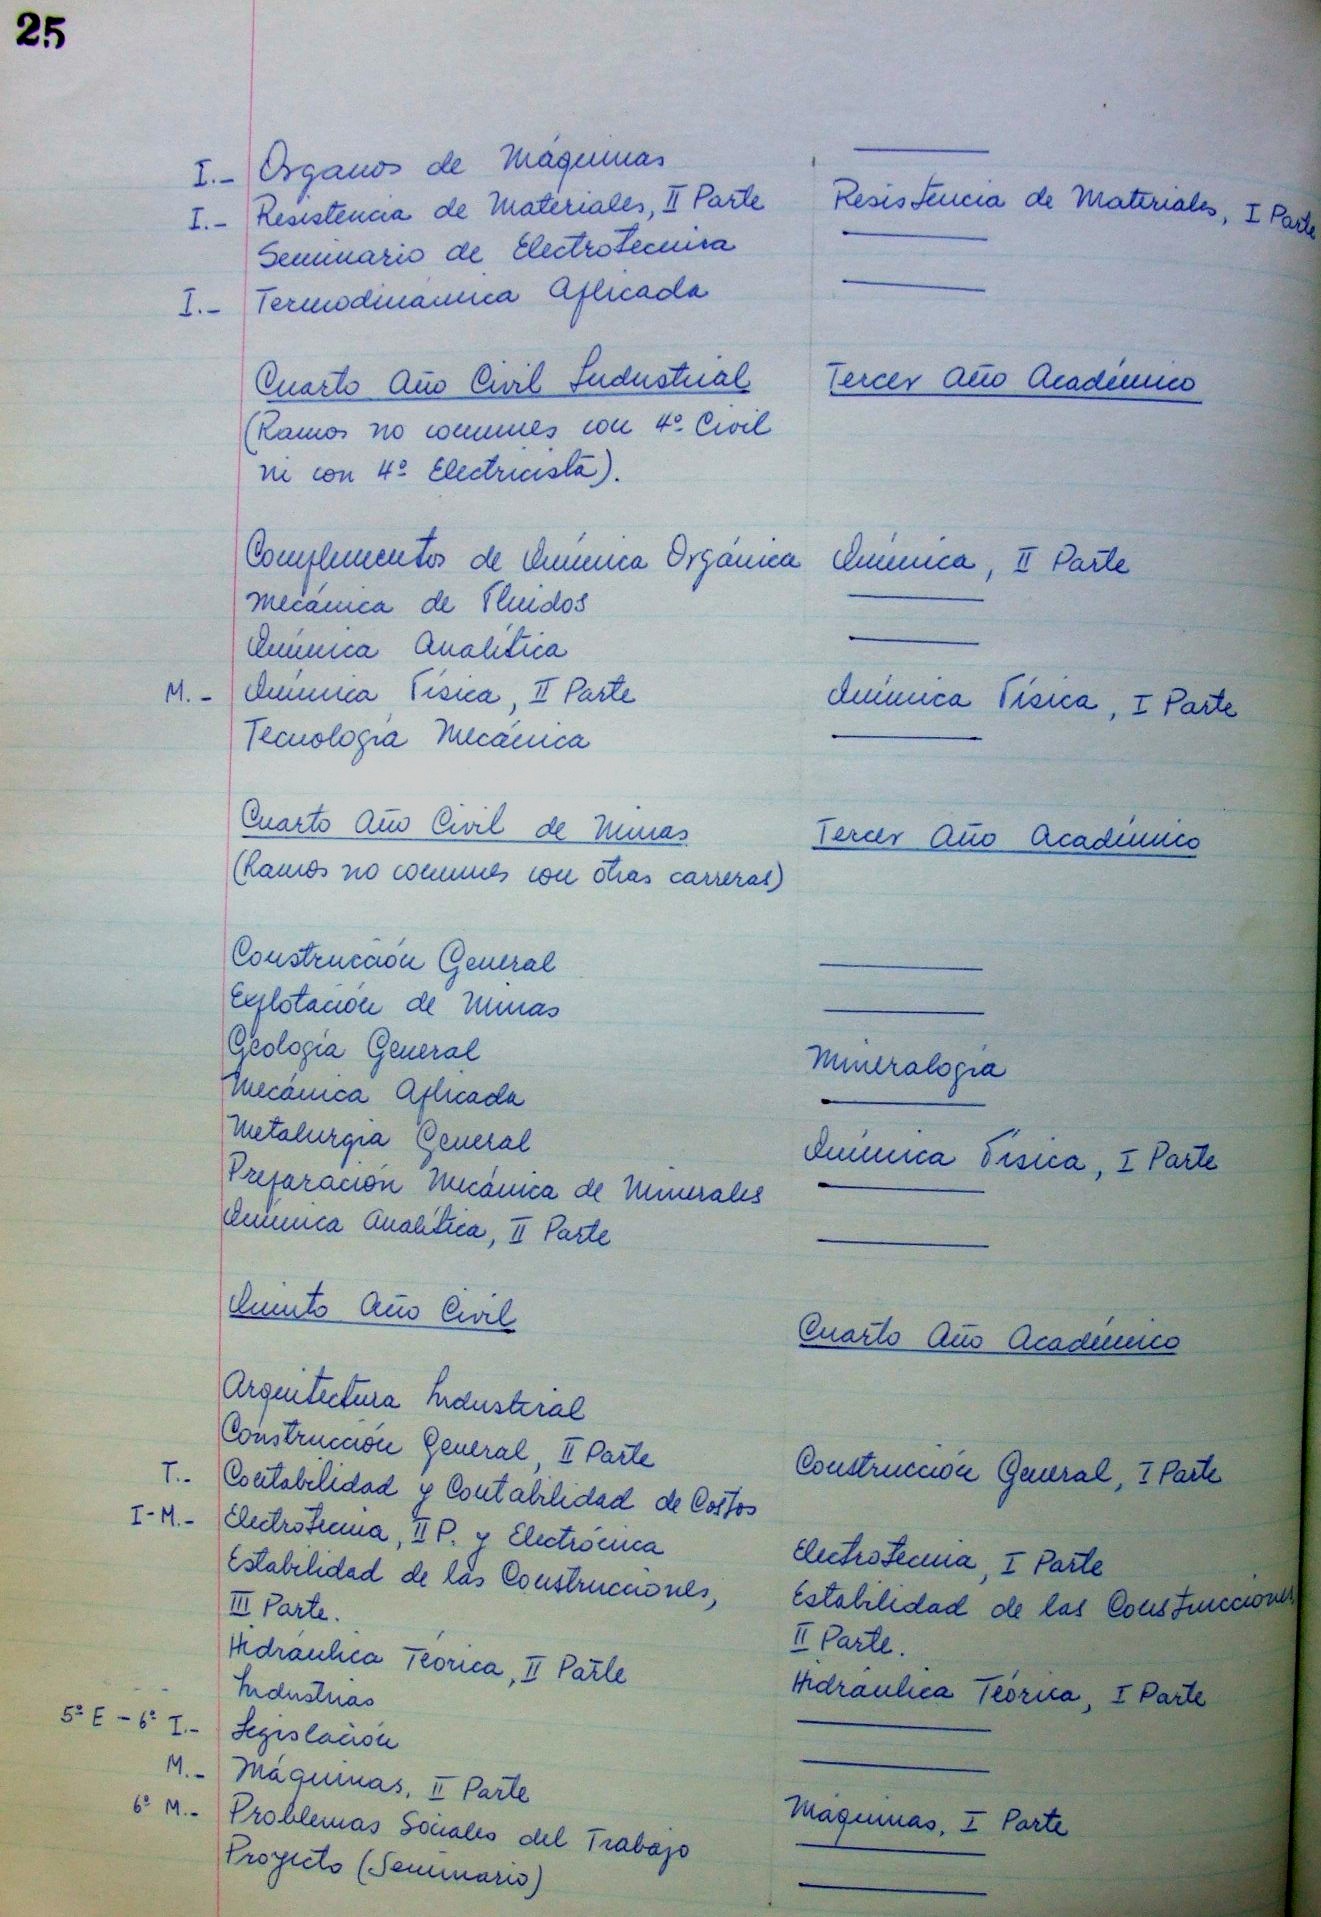 25
I.- Organos de Máquinas ———
I.- Resistencia de Materiales, II Parte Resistencia de Materiales, I Parte
Seminario de Electrotecnica ———
I.- Termodinámica Aplicada ———
Cuarto Año Civil Industrial Tercer Año Académico
(Ramos no comunes con 4º Civil
ni con 4º Electricista).
Complementos de Química Orgánica Química, II Parte
Mecánica de Fluidos ———
Química Analítica ———
M.- Química Física, II Parte Química Física, I Parte
Tecnología Mecánica ———
Cuarto Año Civil de Minas Tercer Año Académico
(Ramos no comunes con otras carreras)
Construcción General ———
Explotación de Minas ———
Geología General Mineralogía
Mecánica Aplicada ———
Metalurgia General Química Física, I Parte
Preparación Mecánica de Minerales ———
Química Analítica, II Parte ———
Quinto Año Civil Cuarto Año Académico
Arquitectura Industrial
Construcción General, II Parte Construcción General, I Parte
T.- Contabilidad y Contabilidad de Costos
I-M.- Electrotecnia, II P. y Electrónica Electrotecnia, I Parte
Estabilidad de las Construcciones, Estabilidad de las Construcciones,
III Parte. II Parte.
Hidráulica Teórica, II Parte Hidráulica Teórica, I Parte
Industrias ———
5º E - 6º I.- Legislación ———
M.- Máquinas, II Parte Máquinas, I Parte
6º M.- Problemas Sociales del Trabajo ———
Proyecto (Seminario) ———